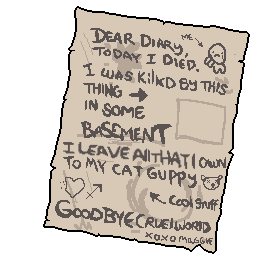 DEAR DIARY,
TODAY I DIED.
ME
I WAS KillED BY THIS
THING
IN SOME
BASEMENT
I LEAVE All THAT I OWN
TO MY CAT GUPPY
Cool Stuff
GOODBYE CRUEl WORlD
XOXO MAGGIE